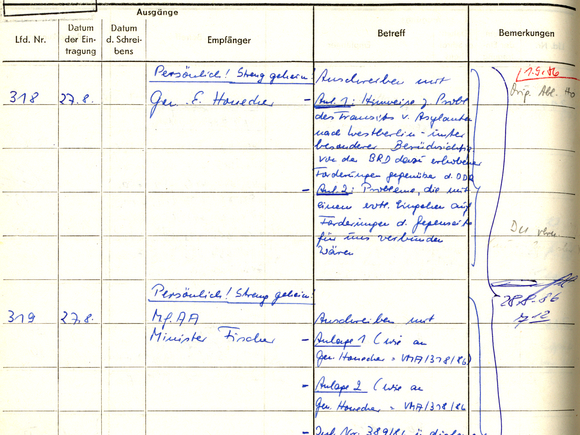 Ausgänge
Lfd. Nr.
Datum der Ein- tragung
Datum d. Schrei- bens
Empfänger
Betreff
Bemerkungen
Persönlich! Streng geheim!
318 27.8. Gen. E. Honecker
Anschreiben mit
- Anl. 1: Hinweise z. Probl.
des Transits v. Asylanten
nach Westberlin - unter
besonderer Berücksichtig.
von der BRD dazu erhobener
Forderungen gegenüber d. DDR
- Anl. 2: Probleme, die mit
einem evtl. Eingehen auf
Forderungen d. Gegenseite
für uns verbunden
wären
1.9.86
Orig. Abl.
28.8.86
Persönlich! Streng geheim!
319 27.8. MfAA
Minister Fischer
Anschreiben mit
- Anlage 1 (wie an
Gen. Honecker = VMA/318/86)
- Anlage 2 (wie an
Gen. Honecker = VMA/318/86
389/86